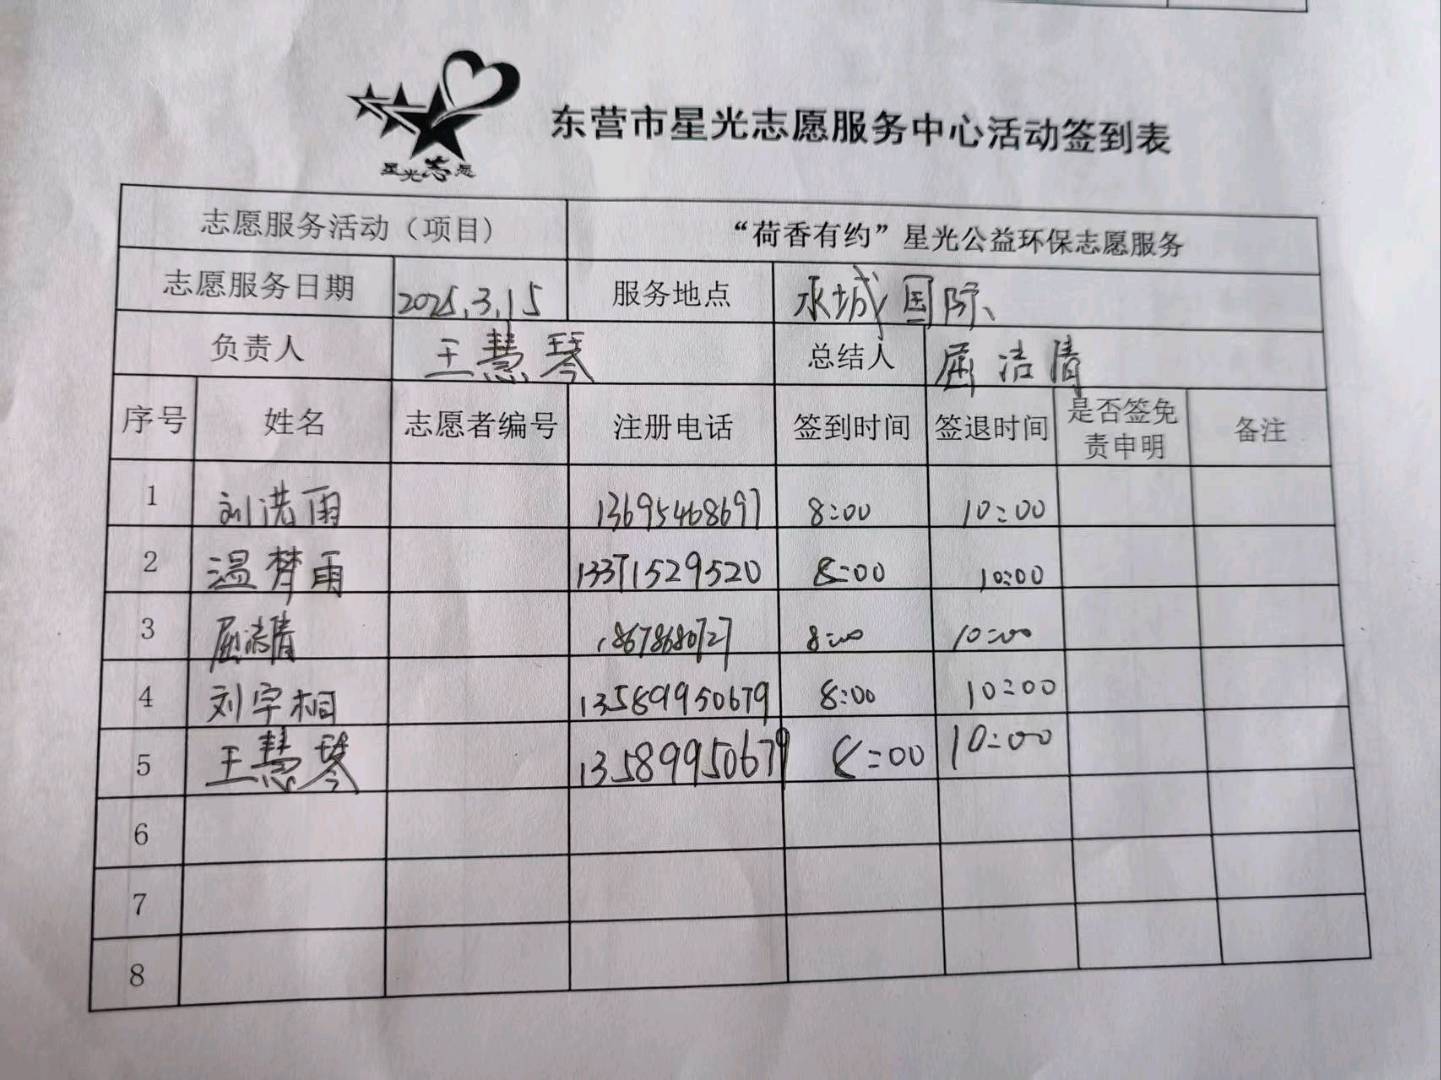 星光志愿
东营市星光志愿服务中心活动签到表
志愿服务活动（项目） “荷香有约”星光公益环保志愿服务
志愿服务日期 2025.3.15 服务地点 永城国际
负责人 王慧琴 总结人 屈洁清
序号 姓名 志愿者编号 注册电话 签到时间 签退时间 是否签免责申明 备注
1 刘洪雨 13695468697 8:00 10:00
2 温梦雨 13371529520 8:00 10:00
3 屈洁清 18678680727 8:00 10:00
4 刘宇桐 13589950679 8:00 10:00
5 王慧琴 13589950679 8:00 10:00
6
7
8